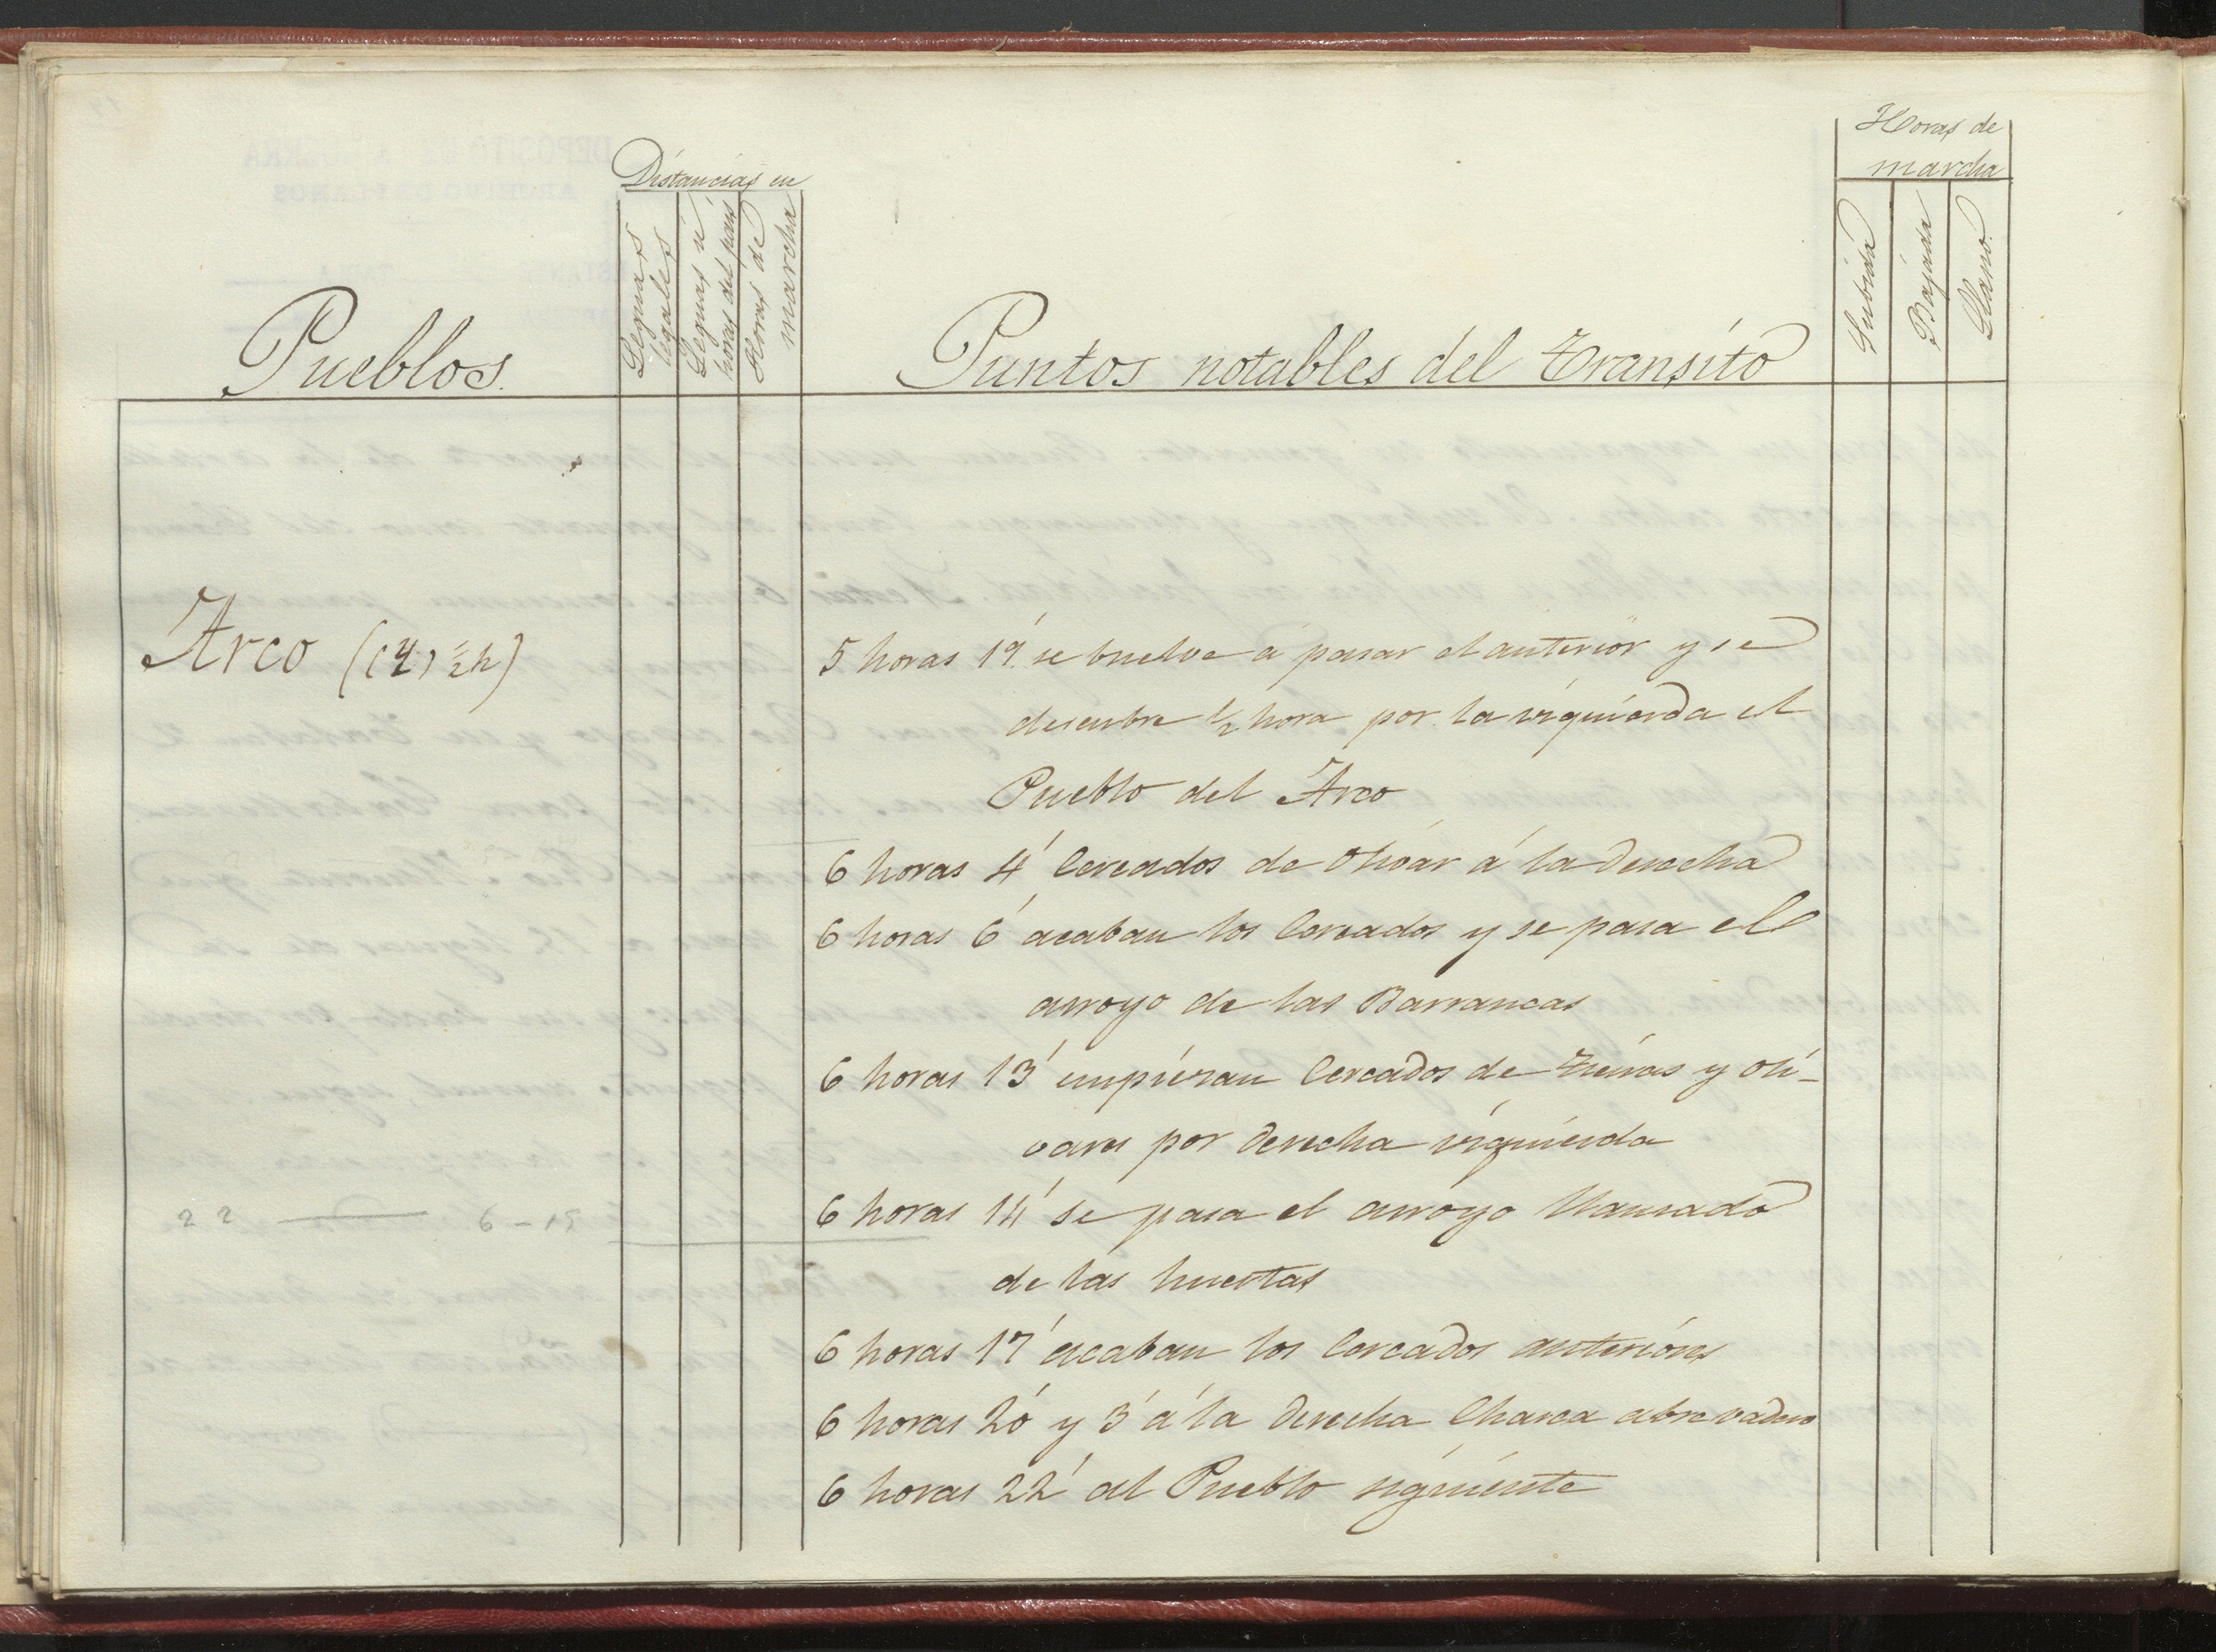 Horas de
marcha
Distancias en
Leguas
legales
Leguas ú
horas del pais
Horas de
marcha
Subida
Bajada
Llano.
Pueblos.
Puntos notables del Transito
Arco ((4) ½ h)
5 horas 19' se buelve á pasar el anterior y se
descubre ½ hora por la izquierda el
Pueblo del Arco
6 horas 4' Cercados de Olivar á la derecha
6 horas 6' acaban los Cercados y se pasa el
arroyo de las Barrancas
6 horas 13' empiezan Cercados de Tierras y Oli-
vares por derecha izquierda
6 horas 14' se pasa el arroyo llamado
22 — 6-15
de las huertas
6 horas 17' acaban los Cercados anteriores
6 horas 20' y 3' á la derecha Charca abrevadero
6 horas 22' al Pueblo siguiente